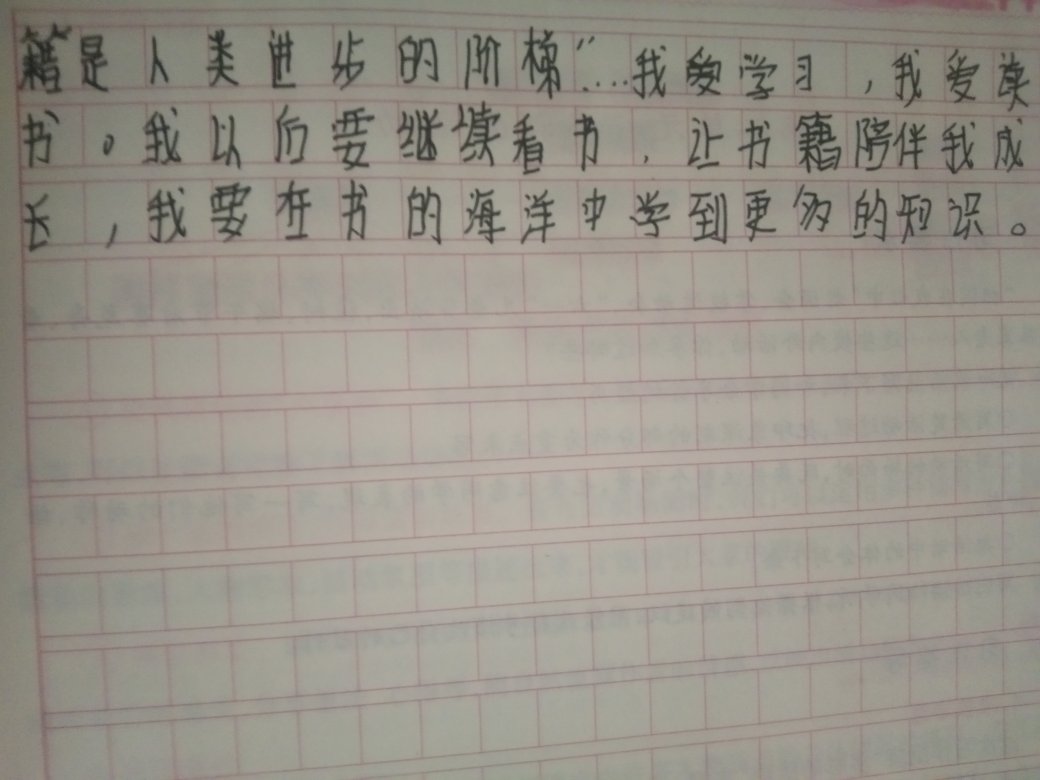 籍是人类进步的阶梯”…我爱学习，我爱读
书。我以后要继续看书，让书籍陪伴我成
长，我要在书的海洋中学到更多的知识。